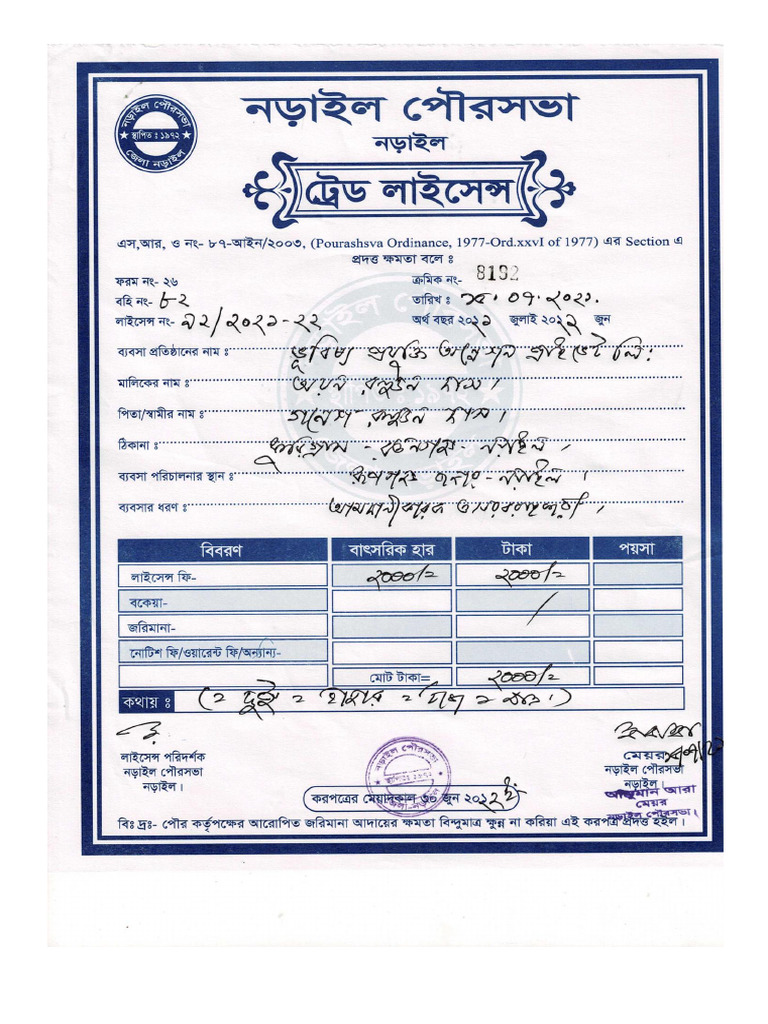 নড়াইল পৌরসভা
স্থাপিত : ১৯৭২
জেলা নড়াইল
নড়াইল পৌরসভা
নড়াইল
ট্রেড লাইসেন্স
এস,আর, ও নং- ৮৭-আইন/২০০৩, (Pourashsva Ordinance, 1977-Ord.xxvI of 1977) এর Section এ
প্রদত্ত ক্ষমতা বলে ঃ
ফরম নং- ২৬
ক্রমিক নং- 8192
বহি নং- ৮২
তারিখ ঃ ০৭. ২০২১.
লাইসেন্স নং- ৯২/২০২১-২২
অর্থ বছর ২০২১ জুলাই ২০২২ জুন
ব্যবসা প্রতিষ্ঠানের নাম ঃ প্রযুক্তি প্রাইভেট লি:
মালিকের নাম ঃ দাস।
পিতা/স্বামীর নাম ঃ গনেশ দাস।
ঠিকানা ঃ নড়াইল।
ব্যবসা পরিচালনার স্থান ঃ রূপগঞ্জ বাজার - নড়াইল।
ব্যবসার ধরণ ঃ আমদানীকারক ও সরবরাহকারী।
বিবরণ বাৎসরিক হার টাকা পয়সা
লাইসেন্স ফি- ২০০০/= ২০০০/=
বকেয়া- /
জরিমানা-
নোটিশ ফি/ওয়ারেন্ট ফি/অন্যান্য-
মোট টাকা= ২০০০/=
কথায় ঃ (= দুই = হাজার = টাকা = মাত্র।)
লাইসেন্স পরিদর্শক
নড়াইল পৌরসভা
নড়াইল।
নড়াইল পৌরসভা
স্থাপিতঃ ১৯৭২
জেলা-নড়াইল
মেয়র
নড়াইল পৌরসভা
নড়াইল।
আঞ্জুমান আরা
মেয়র
নড়াইল পৌরসভা।
করপত্রের মেয়াদকাল ৩০ জুন ২০২২ ইং
বিঃ দ্রঃ- পৌর কর্তৃপক্ষের আরোপিত জরিমানা আদায়ের ক্ষমতা বিন্দুমাত্র ক্ষুন্ন না করিয়া এই করপত্র প্রদত্ত হইল।